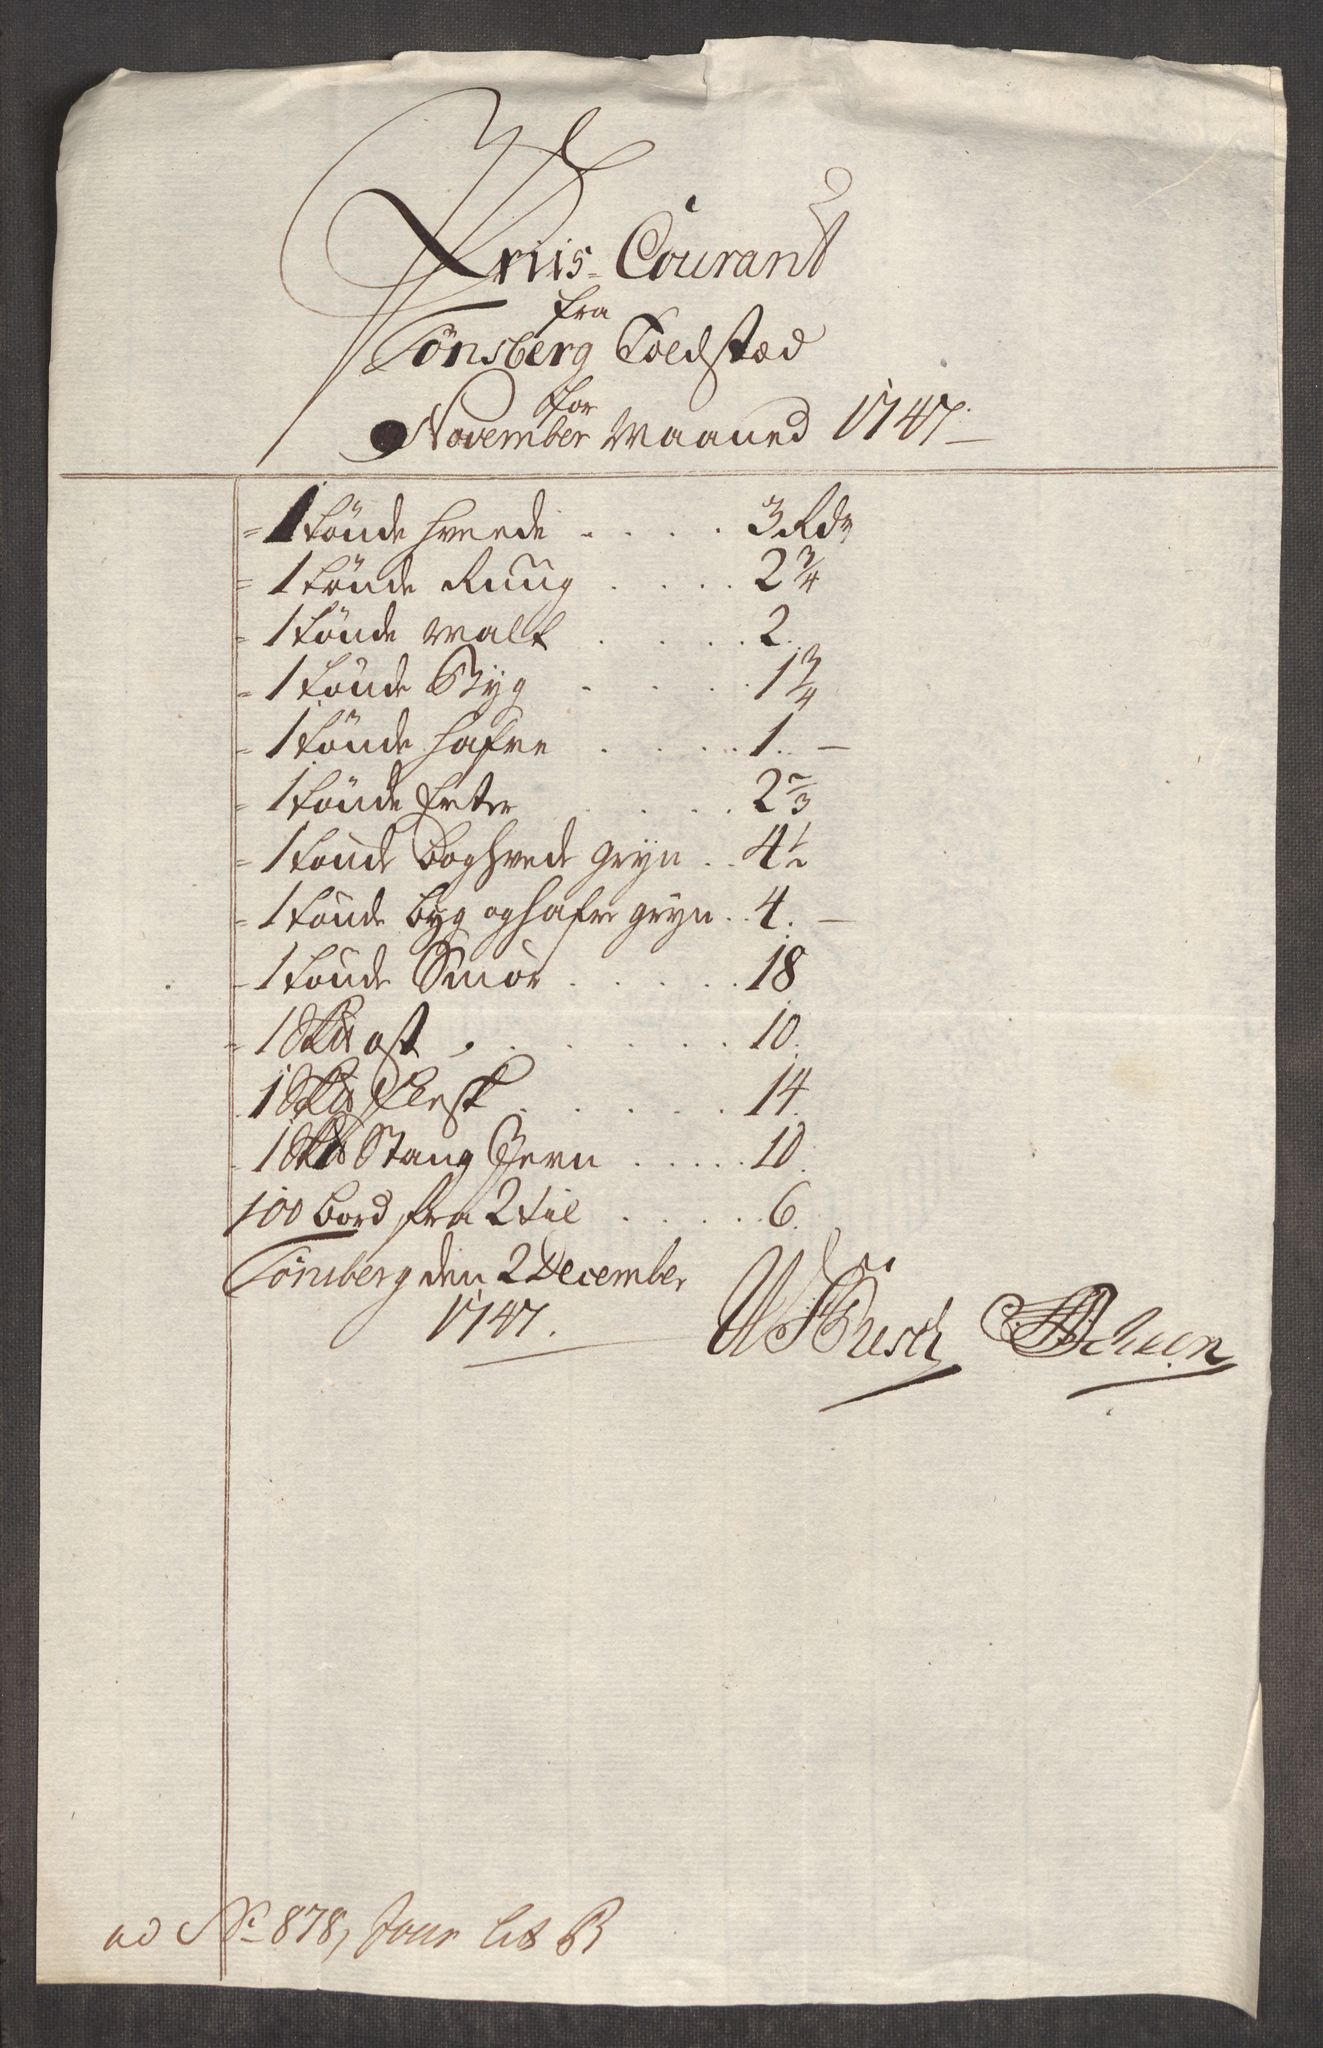 Priis-Courant
fra
Tönsberg Toldstæd
for
November Maaned 1747.
1 tönde hveede . . . . 3 Rdr
1 tönde Ruug . . . . 2 3/4
1 tönde Malt . . . . 2.
1 tönde Byg . . . . 1 3/4
1 tönde hafre . . . . 1. —
1 tönde Erter . . . . 2 2/3
1 tönde boghvede gryn . . 4 1/2
1 tönde byg og hafre gryn . . 4. —
1 tönde Smör . . . . . 18
1 Sk℔ ost . . . . . 10.
1 Sk℔ Flesk . . . . . 14.
1 Sk℔ Stang Jern . . . . . 10.
100 bord fra 2 til . . . . . 6.
Tönsberg den 2 December
1747.
ad No 878, Jour lit B